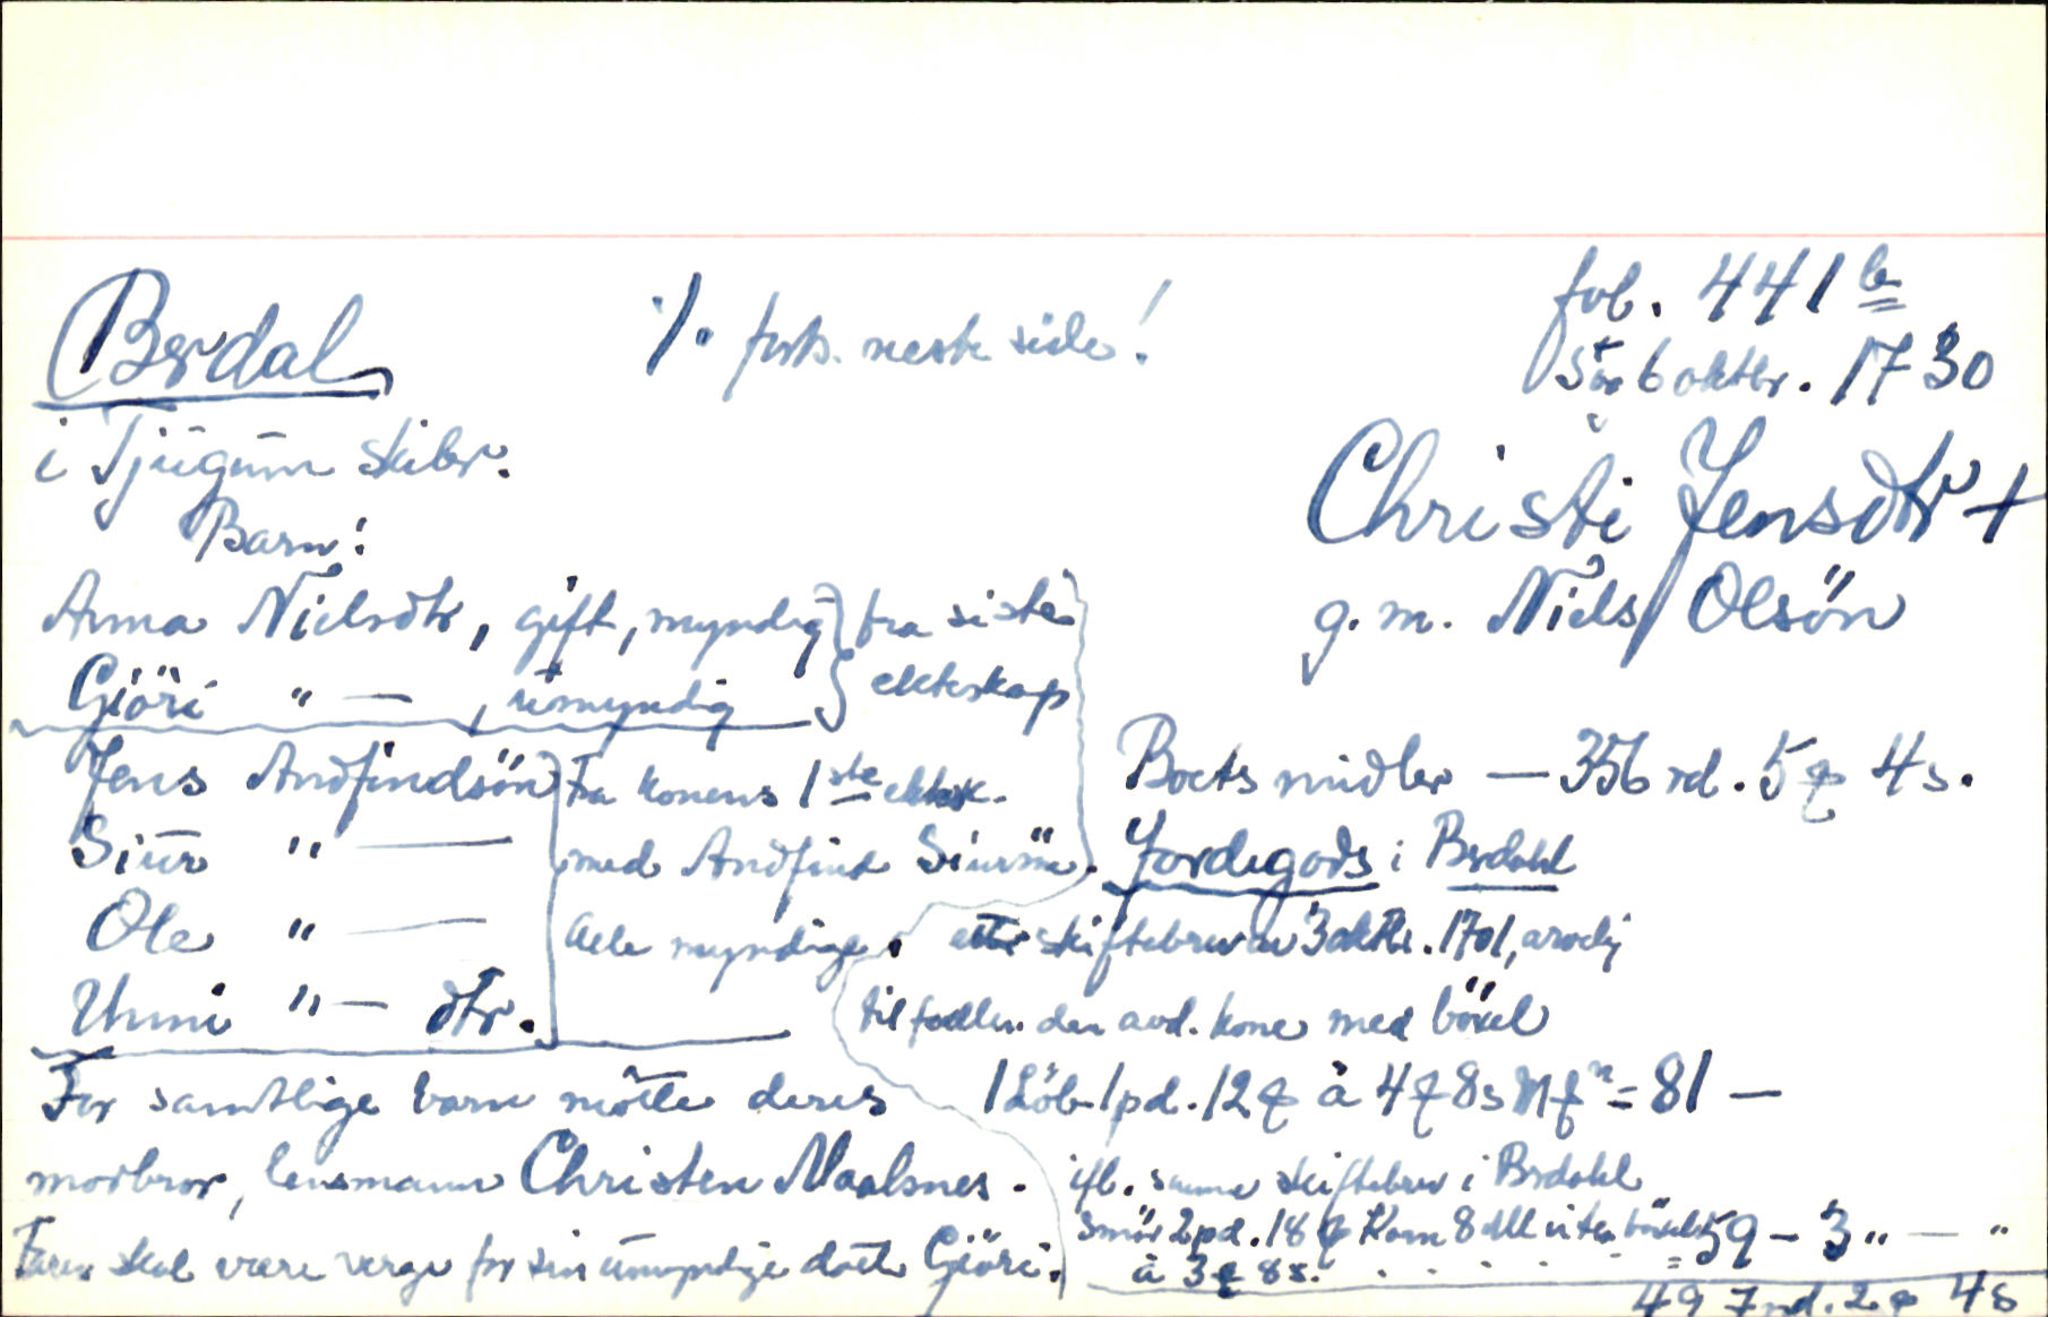 Brdal
i Tjugum skibr.
./. forts. neste side!
fol. 441 b
6 oktbr. 1730
Christi Jensdtr +
g. m. Niels Olsön
Barn:
Anna Nielsdtr, gift, myndig
Gjöri " — , umyndig
fra siste
ekteskap
Jens Andfindsön
Siur " —
Ole " —
Unni " — dtr.
Fra konens 1ste ektesk.
med Andfind Siursön.
Alle myndige.
For samtlige barn mötte deres
morbror, lensmann Christen Maalsnes.
Faren skal være verge for sin umyndige datt. Gjöri.
Boets midler — 356 rd. 5 4 s.
Jordegods i Brdahl
etter skiftebrev av 3 oktbr. 1701, arvelig
tilfallen den avd. kone med böxel
1 Löb 1 pd. 12 à 4 8 s = 81 —
ifl. samme skiftebrev i Brdahl
Smör 2 pd. 18 Korn 8 uten böxel
à 3 8 s. . . . . . = 59 - 3 " — "
497 rd. 2 4 s